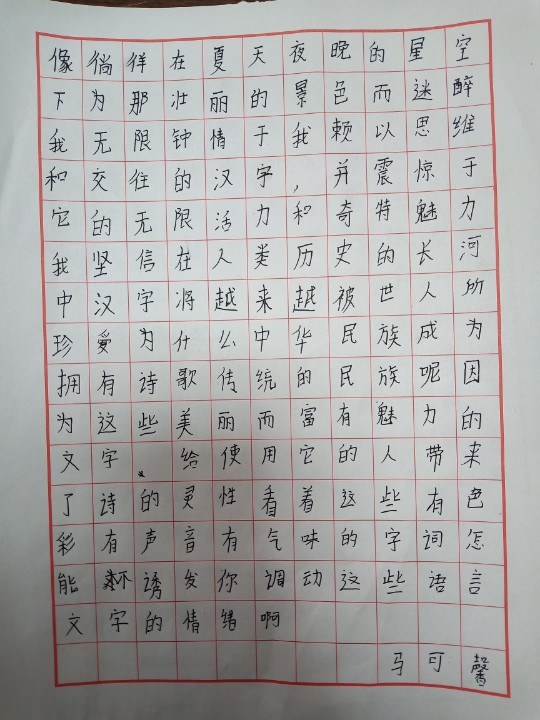 像徜徉在夏天夜晚的星空
下为那壮丽的景色而迷醉
我无限钟情于我赖以思维
和交往的汉字,并震惊于
它的无限活力和奇特魅力
我坚信在人类历史的长河
中汉字将越来越被世人所
珍爱为什么中华民族成为
拥有诗歌传统的民族呢因
为这些美丽而富有魅力的
文字。给使用它的人带来
了诗的灵性看着这些有色
彩有声音有气味的字词怎
能不诱发你调动这些语言
文字的情绪啊
马可馨